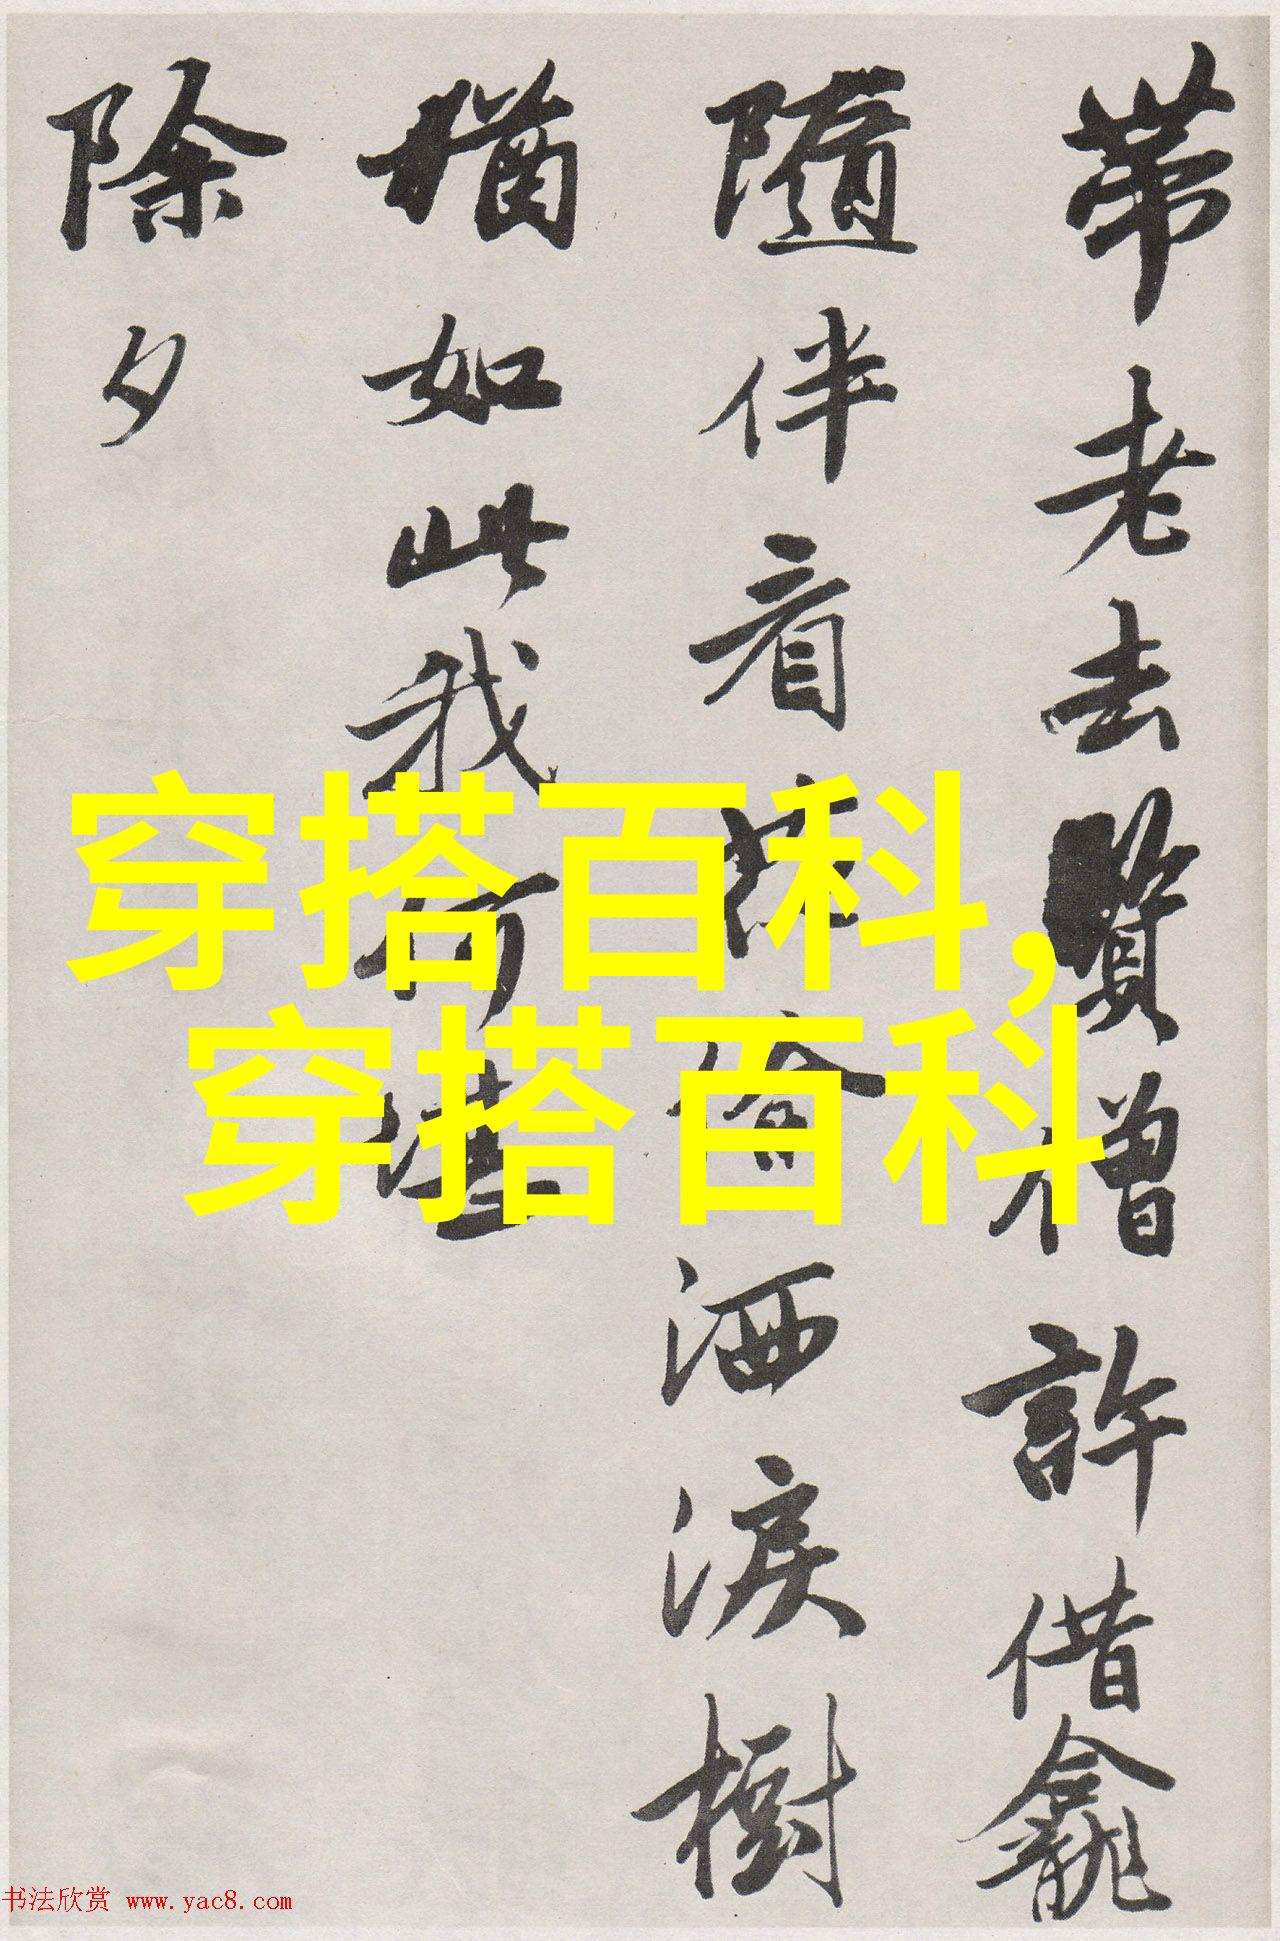 帶老去賢僧許借龕
隨伴看洒淚樹
猶如此我何堪
除夕
穿搭百科,
穿搭百科
书法欣赏 www.yac8.com